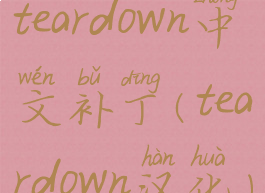 teardown中
wén bǔ dīng
文补丁(tea
hàn huà
rdown汉化)